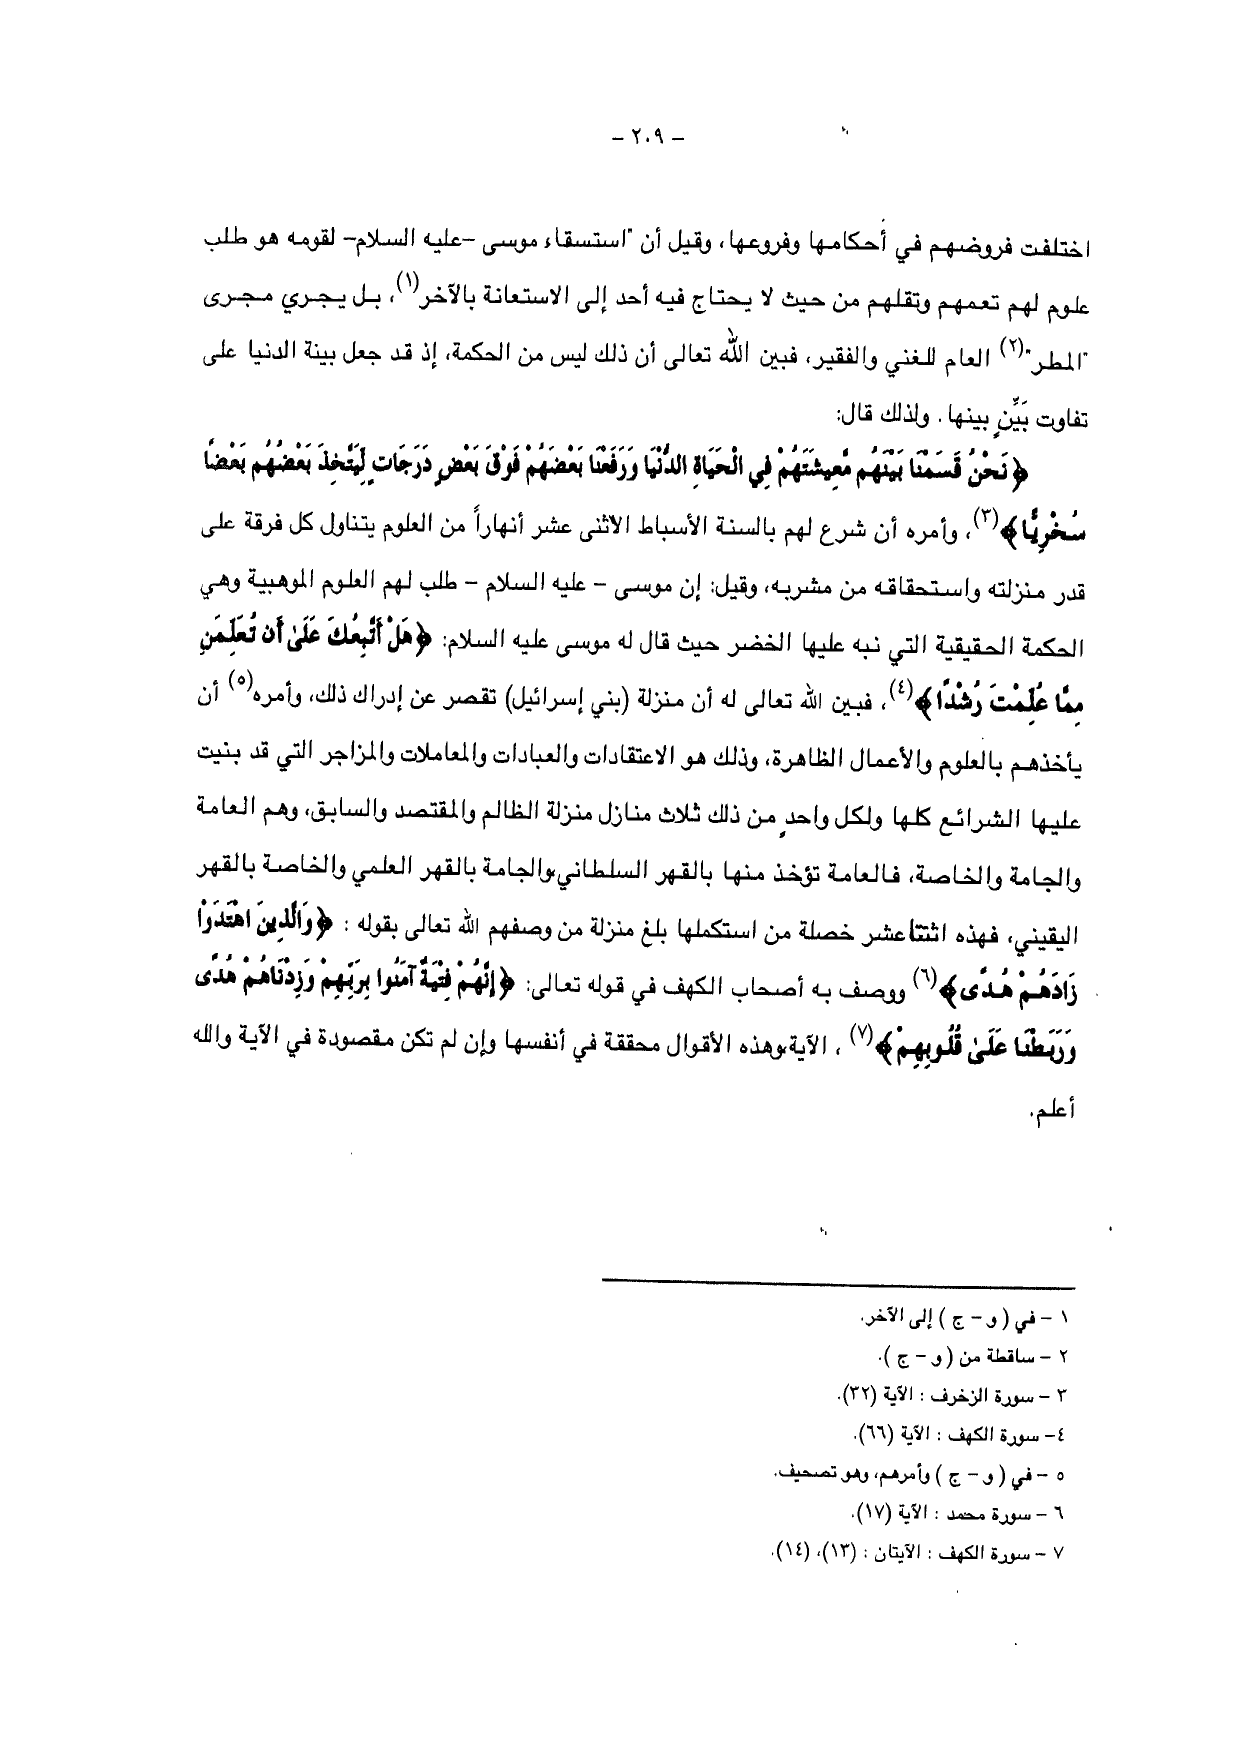 – ٢٠٩ –
اختلفت فروضهم في أحكامها وفروعها، وقيل أن "استسقاء موسى –عليه السلام– لقومه هو طلب
علوم لهم تعمهم وتقلهم من حيث لا يحتاج فيه أحد إلى الاستعانة بالآخر(١)، بل يجري مجرى
"المطر"(٢) العام للغني والفقير، فبين الله تعالى أن ذلك ليس من الحكمة، إذ قد جعل بينة الدنيا على
تفاوت بَيِّنٍ بينها. ولذلك قال:
﴿نَحْنُ قَسَمْنَا بَيْنَهُم مَّعِيشَتَهُمْ فِي الْحَيَاةِ الدُّنْيَا وَرَفَعْنَا بَعْضَهُمْ فَوْقَ بَعْضٍ دَرَجَاتٍ لِيَتَّخِذَ بَعْضُهُم بَعْضًا
سُخْرِيًّا﴾(٣)، وأمره أن شرع لهم بالسنة الأسباط الاثنى عشر أنهاراً من العلوم يتناول كل فرقة على
قدر منزلته واستحقاقه من مشربه، وقيل: إن موسى – عليه السلام – طلب لهم العلوم الموهبية وهي
الحكمة الحقيقية التي نبه عليها الخضر حيث قال له موسى عليه السلام: ﴿هَلْ أَتَّبِعُكَ عَلَىٰ أَن تُعَلِّمَنِ
مِمَّا عُلِّمْتَ رُشْدًا﴾(٤)، فبين الله تعالى له أن منزلة (بني إسرائيل) تقصر عن إدراك ذلك، وأمره(٥) أن
يأخذهم بالعلوم والأعمال الظاهرة، وذلك هو الاعتقادات والعبادات والمعاملات والمزاجر التي قد بنيت
عليها الشرائع كلها ولكل واحدٍ من ذلك ثلاث منازل منزلة الظالم والمقتصد والسابق، وهم العامة
والجامة والخاصة، فالعامة تؤخذ منها بالقهر السلطاني،والجامة بالقهر العلمي والخاصة بالقهر
اليقيني، فهذه اثنتاعشر خصلة من استكملها بلغ منزلة من وصفهم الله تعالى بقوله : ﴿وَالَّذِينَ اهْتَدَوْا
زَادَهُمْ هُدًى﴾(٦) ووصف به أصحاب الكهف في قوله تعالى: ﴿إِنَّهُمْ فِتْيَةٌ آمَنُوا بِرَبِّهِمْ وَزِدْنَاهُمْ هُدًى
وَرَبَطْنَا عَلَىٰ قُلُوبِهِمْ﴾(٧) ، الآية،وهذه الأقوال محققة في أنفسها وإن لم تكن مقصودة في الآية والله
أعلم.
١ – في ( و – ج ) إلى الآخر.
٢ – ساقطة من ( و – ج ).
٣ – سورة الزخرف : الآية (٣٢).
٤– سورة الكهف : الآية (٦٦).
٥ – في ( و – ج ) وأمرهم، وهو تصحيف.
٦ – سورة محمد : الآية (١٧).
٧ – سورة الكهف : الآيتان : (١٣)، (١٤).